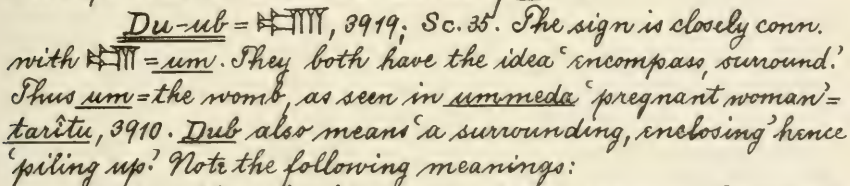 Du-ub = 𒁾, 3919; Sc. 35. The sign is closely conn.
with 𒌝 = um. They both have the idea ‘encompass, surround.’
Thus um = the womb, as seen in ummeda ‘pregnant woman’ =
tarîtu, 3910. Dub also means ‘a surrounding, enclosing’ hence
‘piling up.’ Note the following meanings: